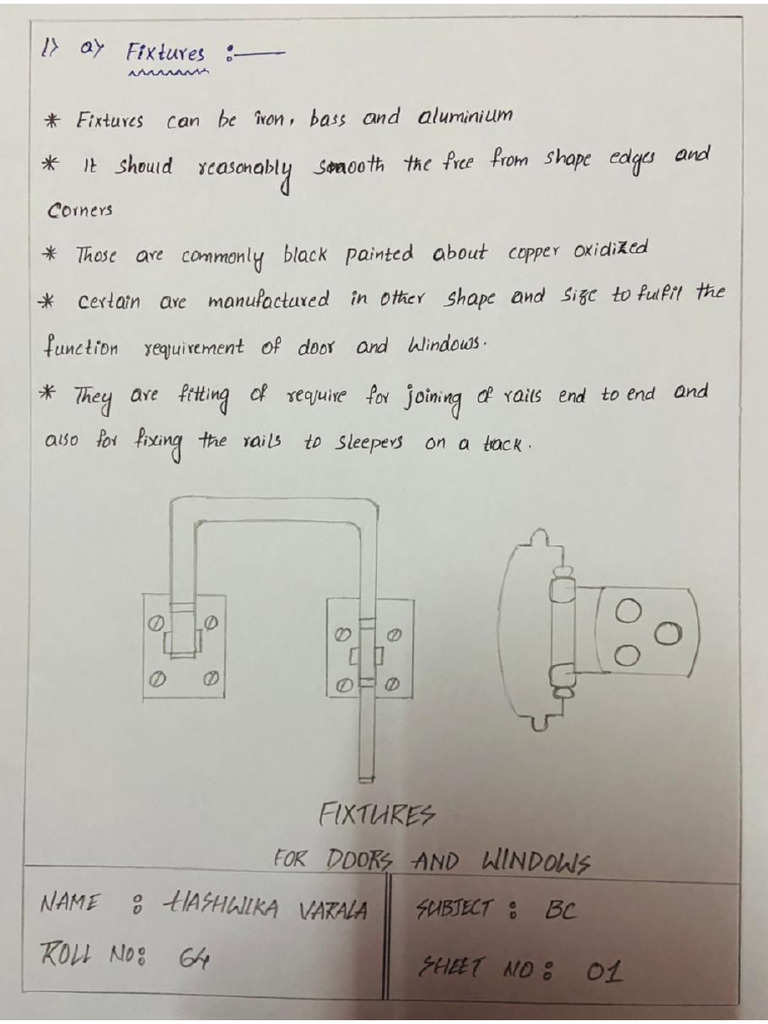 1) a) Fixtures :-
* Fixtures can be iron, bass and aluminium
* It should reasonably smooth the free from shape edges and
corners
* Those are commonly black painted about copper oxidized
* Certain are manufactured in other shape and size to fulfil the
function requirement of door and windows.
* They are fitting of require for joining of rails end to end and
also for fixing the rails to sleepers on a track.
FIXTURES
FOR DOORS AND WINDOWS
NAME : HASHWIKA VARALA
ROLL NO: 64
SUBJECT : BC
SHEET NO : 01